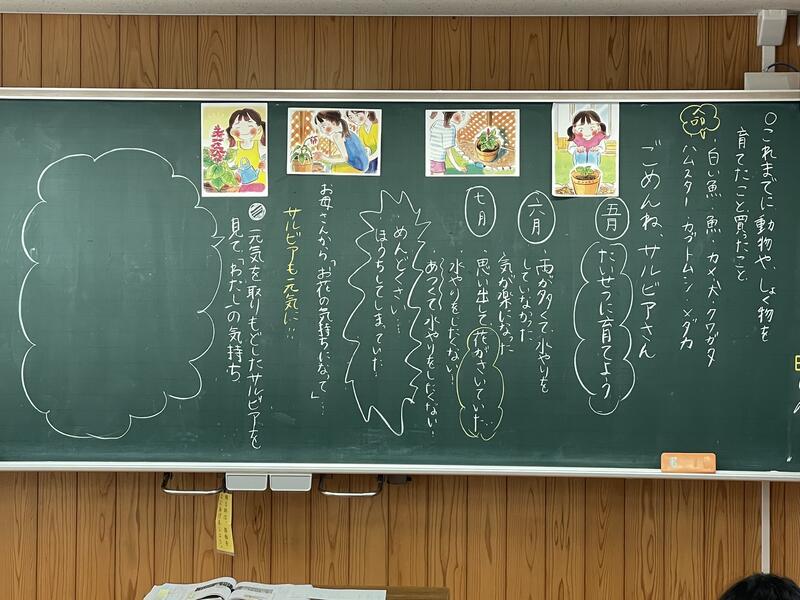 ○これまでに動物や、しょく物を
育てたこと買ったこと
命
・白い魚・魚・カメ・犬・クワガタ
ハムスター・カブトムシ・メダカ
ごめんね、サルビアさん
五月
たいせつに育てよう
六月
雨が多くて、水やりを
していなかった
気が楽になった
七月
・思い出して花がさいていた…
水やりをしたくない…
・あつくて水やりをしたくない…
めんどくさい…
ほうちしてしまっていた…
お母さんから「お花の気持ちになって」…
サルビアも元気に…
元気を取りもどしたサルビアを
見て「わたし」の気持ち